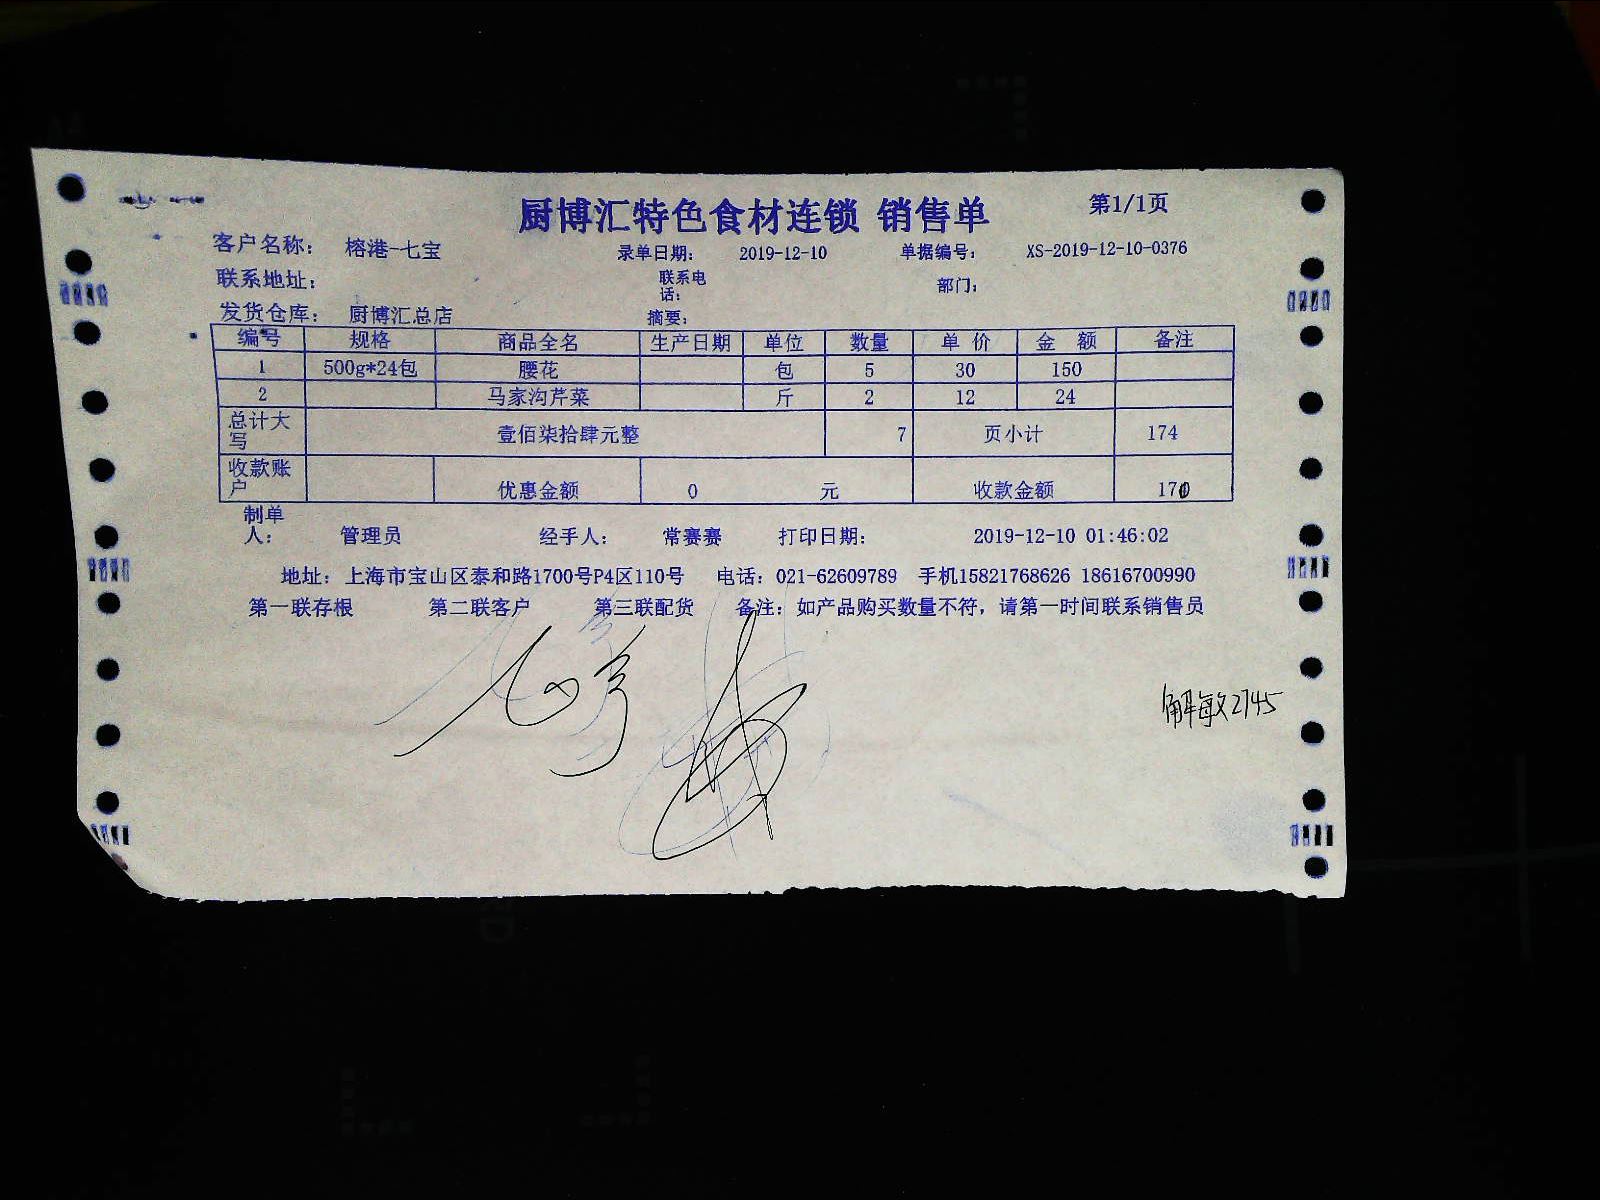 厨博汇特色食材连锁 销售单 第1/1页
客户名称: 榕港-七宝 录单日期: 2019-12-10 单据编号: XS-2019-12-10-0376
联系地址: 联系电话: 部门:
发货仓库: 厨博汇总店 摘要:
编号 规格 商品全名 生产日期 单位 数量 单价 金额 备注
1 500g*24包 腰花 包 5 30 150
2 马家沟芹菜 斤 2 12 24
总计大写 壹佰柒拾肆元整 7 页小计 174
收款账户 优惠金额 0 元 收款金额
制单人: 管理员 经手人: 常赛赛 打印日期: 2019-12-10 01:46:02
地址: 上海市宝山区泰和路1700号P4区110号 电话: 021-62609789 手机15821768626 18616700990
第一联存根 第二联客户 第三联配货 备注: 如产品购买数量不符, 请第一时间联系销售员
解敏2745